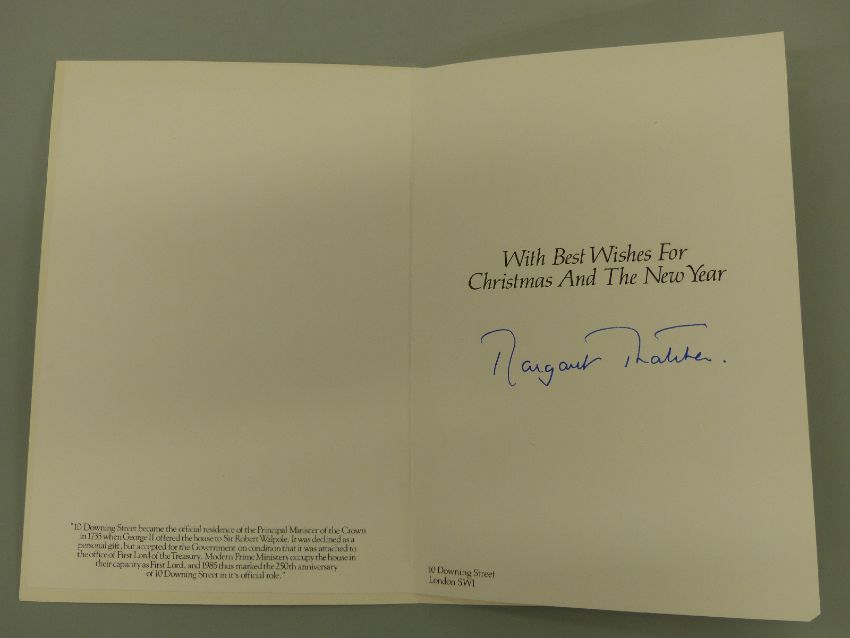 "10 Downing Street became the official residence of the Principal Minister of the Crown
in 1735 when George II offered the house to Sir Robert Walpole. It was declined as a
personal gift, but accepted for the Government on condition that it was attached to
the office of First Lord of the Treasury. Modern Prime Ministers occupy the house in
their capacity as First Lord, and 1985 thus marked the 250th anniversary
of 10 Downing Street in it's official role."
With Best Wishes For
Christmas And The New Year
Margaret Thatcher.
10 Downing Street
London SW1